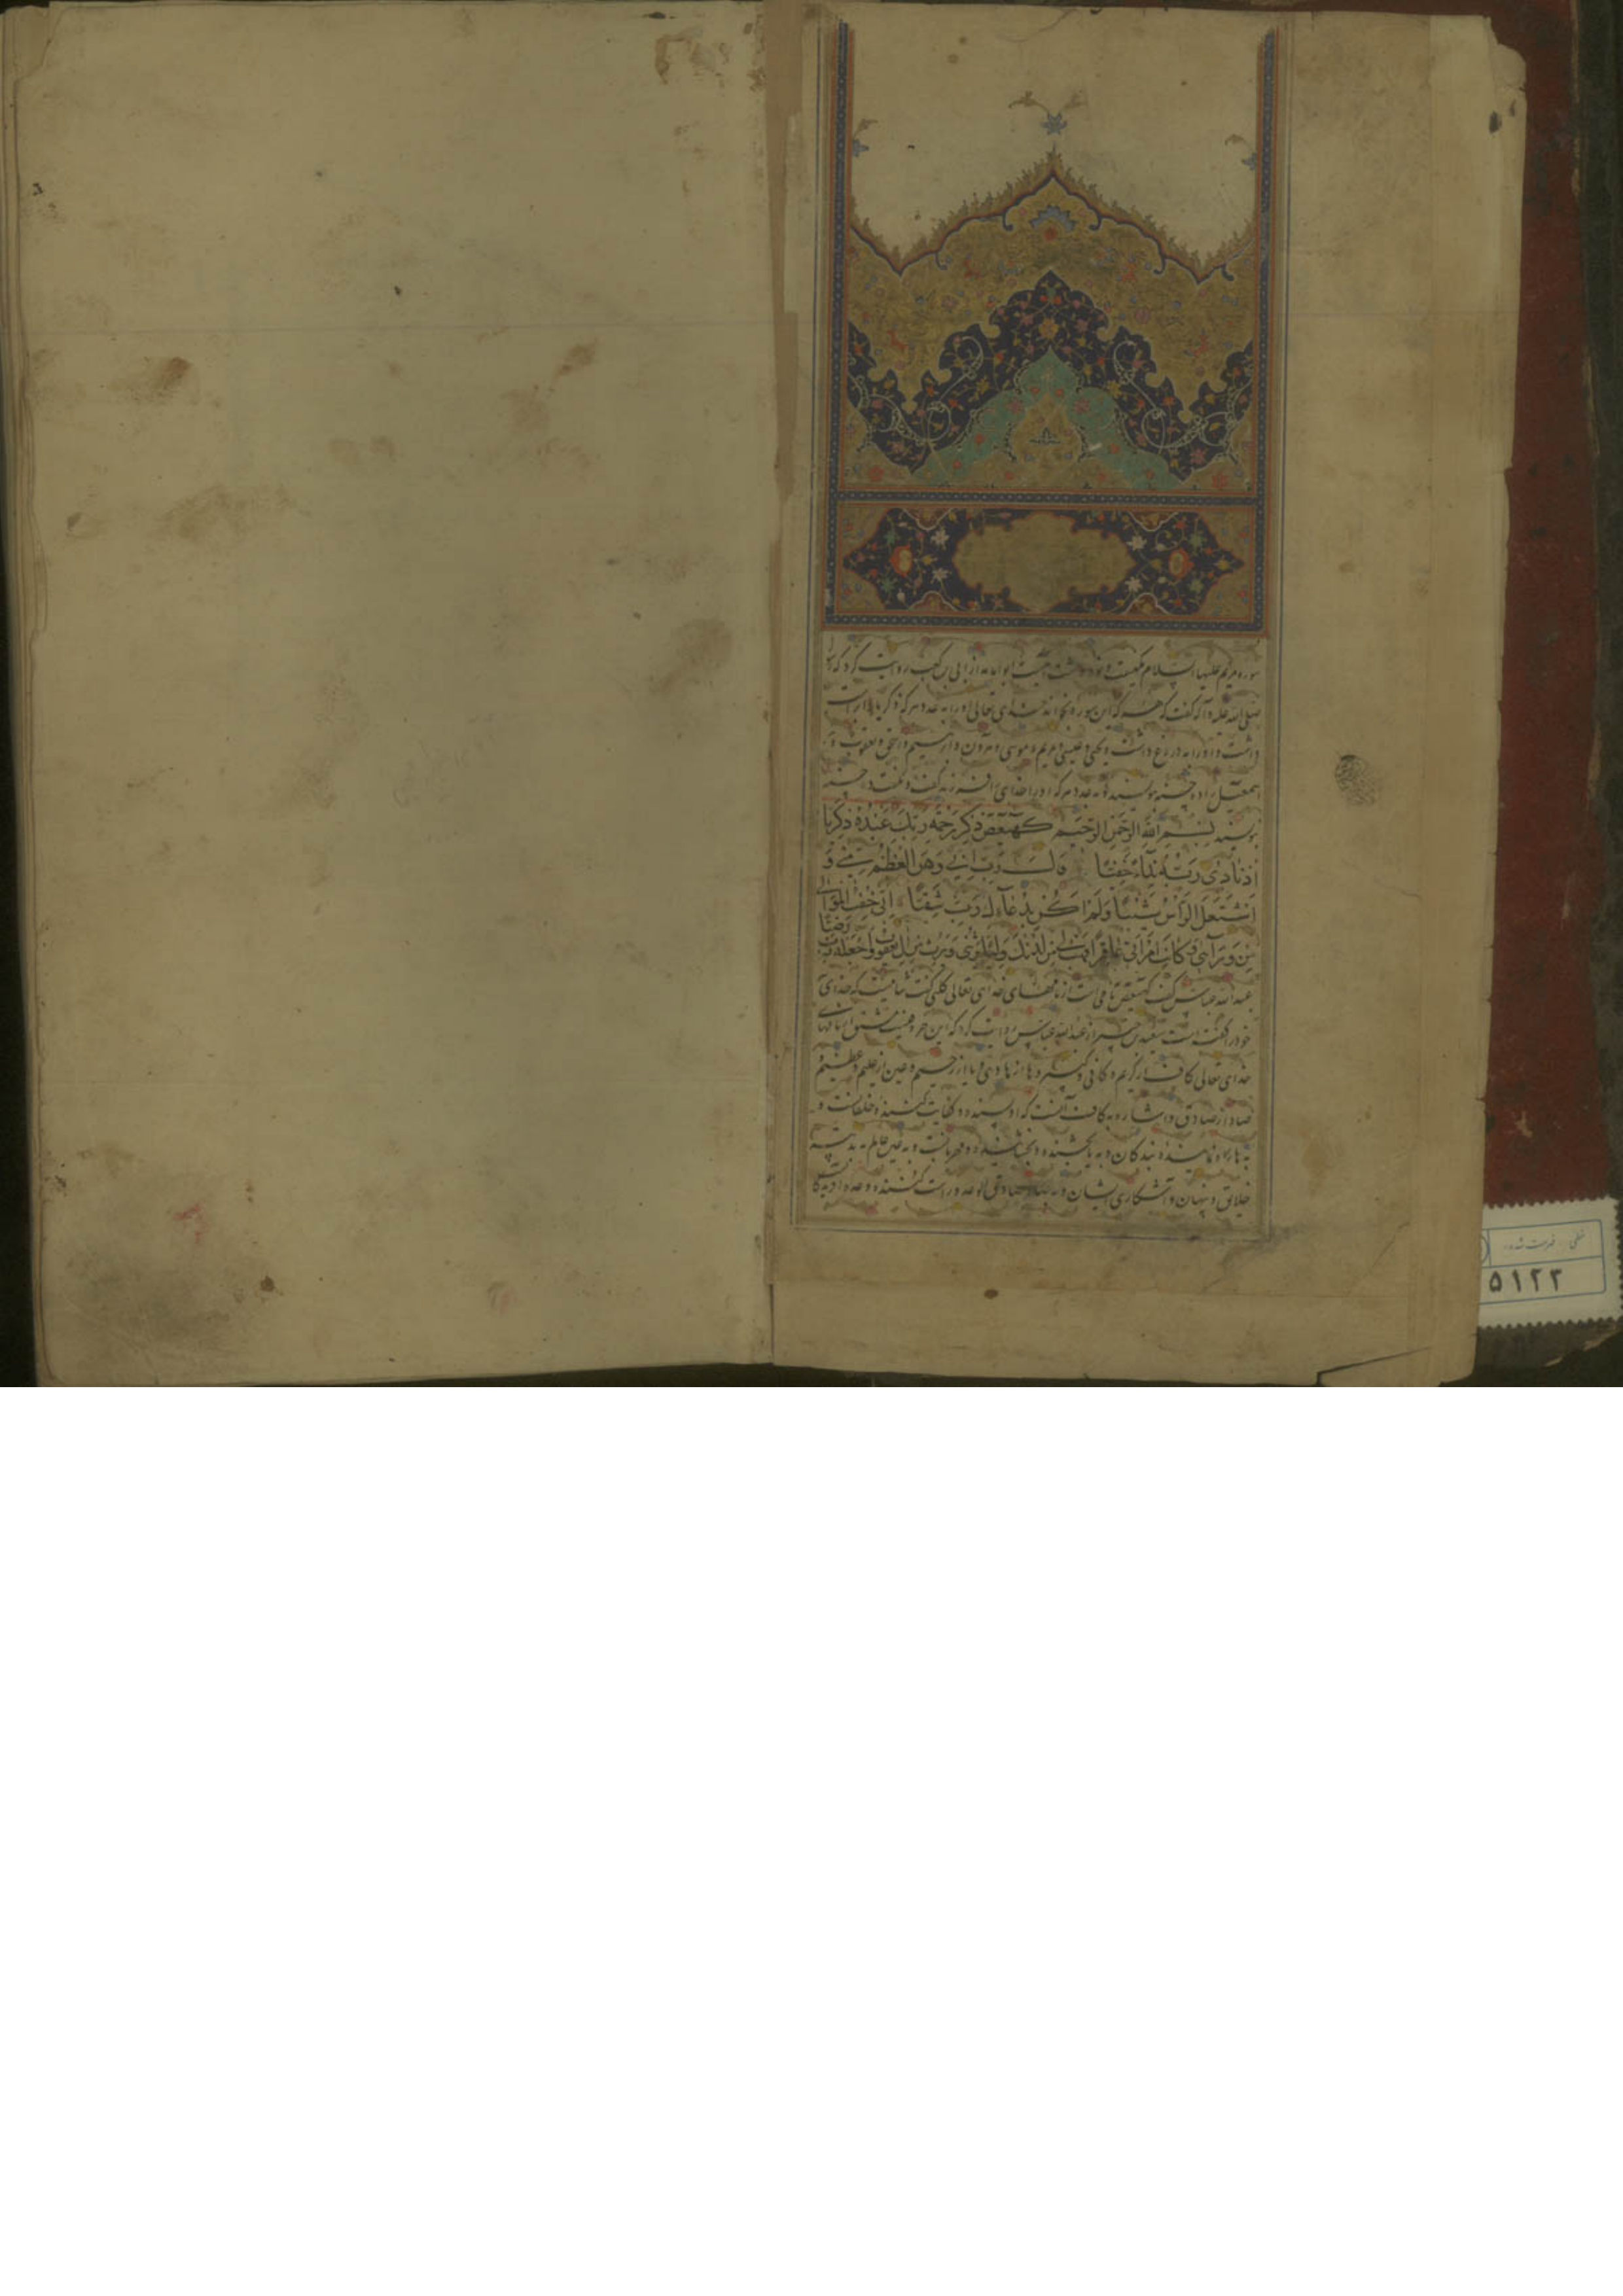 سوره مریم علیها السلام مکیست و نود و هشت آیتست ابوامامه از ابی بن کعب روایت کرد که رسول
صلی الله علیه و آله گفت که هر که این سوره بخواند خدای تعالی او را به عدد هر که زکریا را باور
داشت و او را به دروغ داشت و یحیی و عیسی و مریم و موسی و هرون و ابرهیم و اسحق و یعقوب و
اسمعیل ده حسنه بنویسند و به عدد هر که او را خدای فرزند گفت و نگفت ده حسنه
بنویسند بسم الله الرحمن الرحیم کهیعص ذکر رحمة ربک عبده زکریا
اذ نادی ربه ندآء خفیا قال رب انی وهن العظم منی و
اشتعل الراس شیبا ولم اکن بدعآئک رب شقیا و انی خفت الموالی
من ورآئی و کانت امراتی عاقرا فهب لی من لدنک ولیا یرثنی و یرث من ال یعقوب و اجعله رب رضیا
عبدالله عباس گفت کهیعص نامی است از نامهای خدای تعالی کلبی گفت ثنائیست که خدای
خود را گفته است سعید بن جبیر از عبدالله عباس روایت کرد که این حروفیست مشتق از نامهای
خدای تعالی کاف از کریم و کافی و کبیر و ها از هادی و یا از رحیم و عین از علیم و عظیم و
صاد از صادق و اشاره به کاف آنست که او بسنده و کفایت کننده خلقانست و
به ها راه نماینده بندگان و به یا بخشنده و بخشاینده و مهربانست و به عین عالم به
خلایق و پنهان و آشکارای ایشان و به صاد صادق الوعد و راست کننده وعده
خطی، فهرست شده
۵۱۲۲